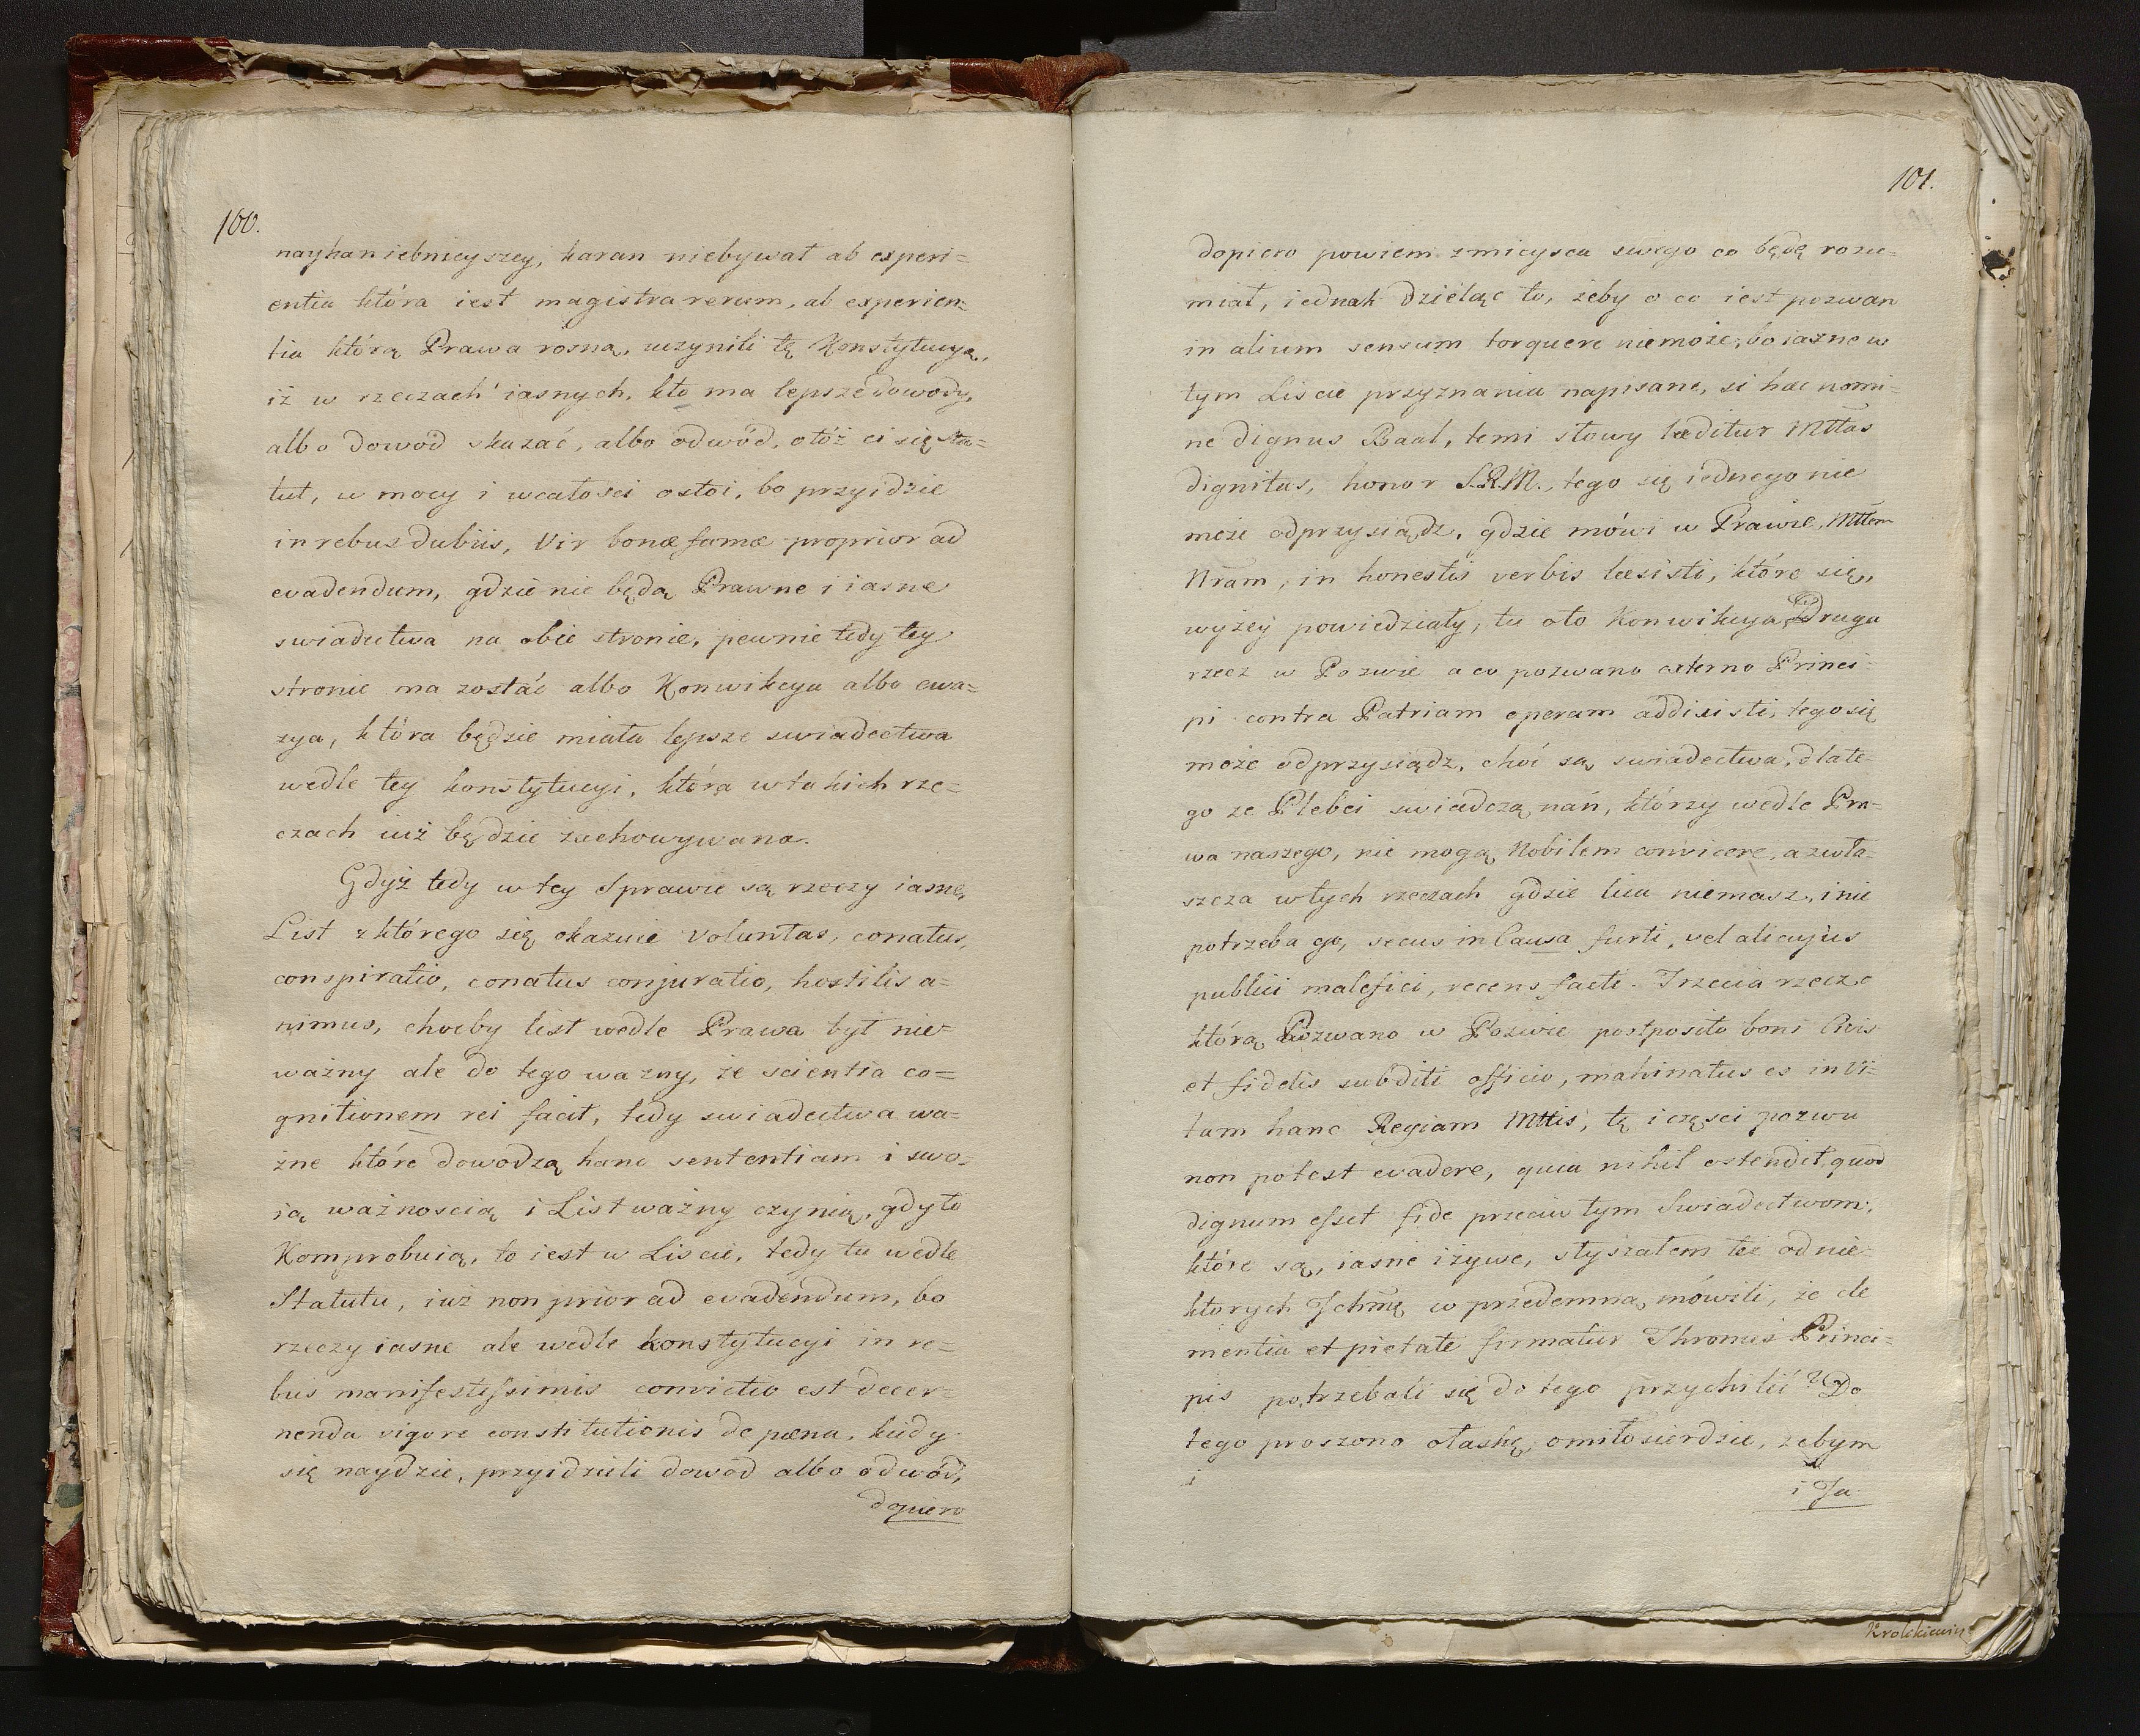 100.
nayhaniebnieyszey, karan niebywał ab experi=
entia która iest magistra rerum, ab experien=
tia którą Prawa rosną, uczynili tę Konstytucyą,
iż w rzeczach iasnych, kto ma lepsze dowody,
albo dowód skazać, albo odwód, otóż ci się Sta=
tut, w mocy i wcałości ostoi, bo przyidzie
in rebus dubiis, Vir bonæ famæ proprior ad
evadendum, gdzie nie będą Prawne i iasne
swiadectwa na obie stronie, pewnie tedy tey
stronie ma zostać albo Konwikcya albo ewa=
zya, która będzie miała lepsze swiadectwa
wedle tey konstytucyi, która w takich rze=
czach iuż będzie zachowywana.
Gdyż tedy w tey Sprawie są rzeczy iasne,
List z którego się okazuie voluntas, conatus,
conspiratio, conatus conjuratio, hostilis a=
nimus, choćby list wedle Prawa był nie=
ważny ale do tego wazny, że scientia co=
gnitionem rei facit, tedy swiadectwa wa=
żne które dowodzą hanc sententiam i swo=
ią ważnoscią i List ważny czynią, gdy to
Komprobuią, to iest w Liscie, tedy tu wedle
Statutu, iuż non prior ad evadendum, bo
rzeczy iasne ale wedle konstytucyi in re=
bus manifestissimis convictio est decer=
nenda vigore constitutionis de pæna, kiedy
się naydzie, przyidzieli dowód albo odwód,
dopiero
101.
dopiero powiem z mieysca swego co będę rozu=
miał, iednak dzieląc to, żeby o co iest pozwan
in alium sensum torquere niemoże, bo iasne w
tym Liscie przyznania napisane, si hac nomi=
ne dignus Baal, temi słowy læditur Mttas
dignitas, honor J.K.M., tego się iednego nie
może odprzysiądz, gdzie mówi w Prawie, Mttem
Nram, in honestis verbis læsisti, które się,,
wyżey powiedziały, tu oto Konwikcya. Druga
rzecz w Pozwie a co pozwano externo Princi=
pi contra Patriam operam addixisti, tego się
może odprzysiądz, choć są swiadectwa, dlate=
go ze Plebei swiadczą nań, którzy wedle Pra=
wa naszego, nie mogą Nobilem convicere, a zwła=
szcza wtych rzeczach gdzie lica niemasz, i nie
potrzeba go, secus in Causa furti, vel alicujus
publici malefici, recens facti. Trzecia rzecz o
którą Pozwano w Pozwie postposito boni Civis
et fidelis subditi officio, mahinatus es in Vi=
tam hanc Regiam Mttis, tę i częsci pozwu
non potest evadere, quia nihil ostendit, quod
dignum esset fide przeciw tym Swiadectwom,
które są, iasne i żywe, słyszałem też od nie=
ktorych Ichmę co przedemną mówili, że cle
mentia et pietate firmatur Thronus Princi=
pis potrzebali się do tego przychilić? Do
tego proszono o łaskę, o miłosierdzie, zebym
i
i Ja
Krolikiewicz